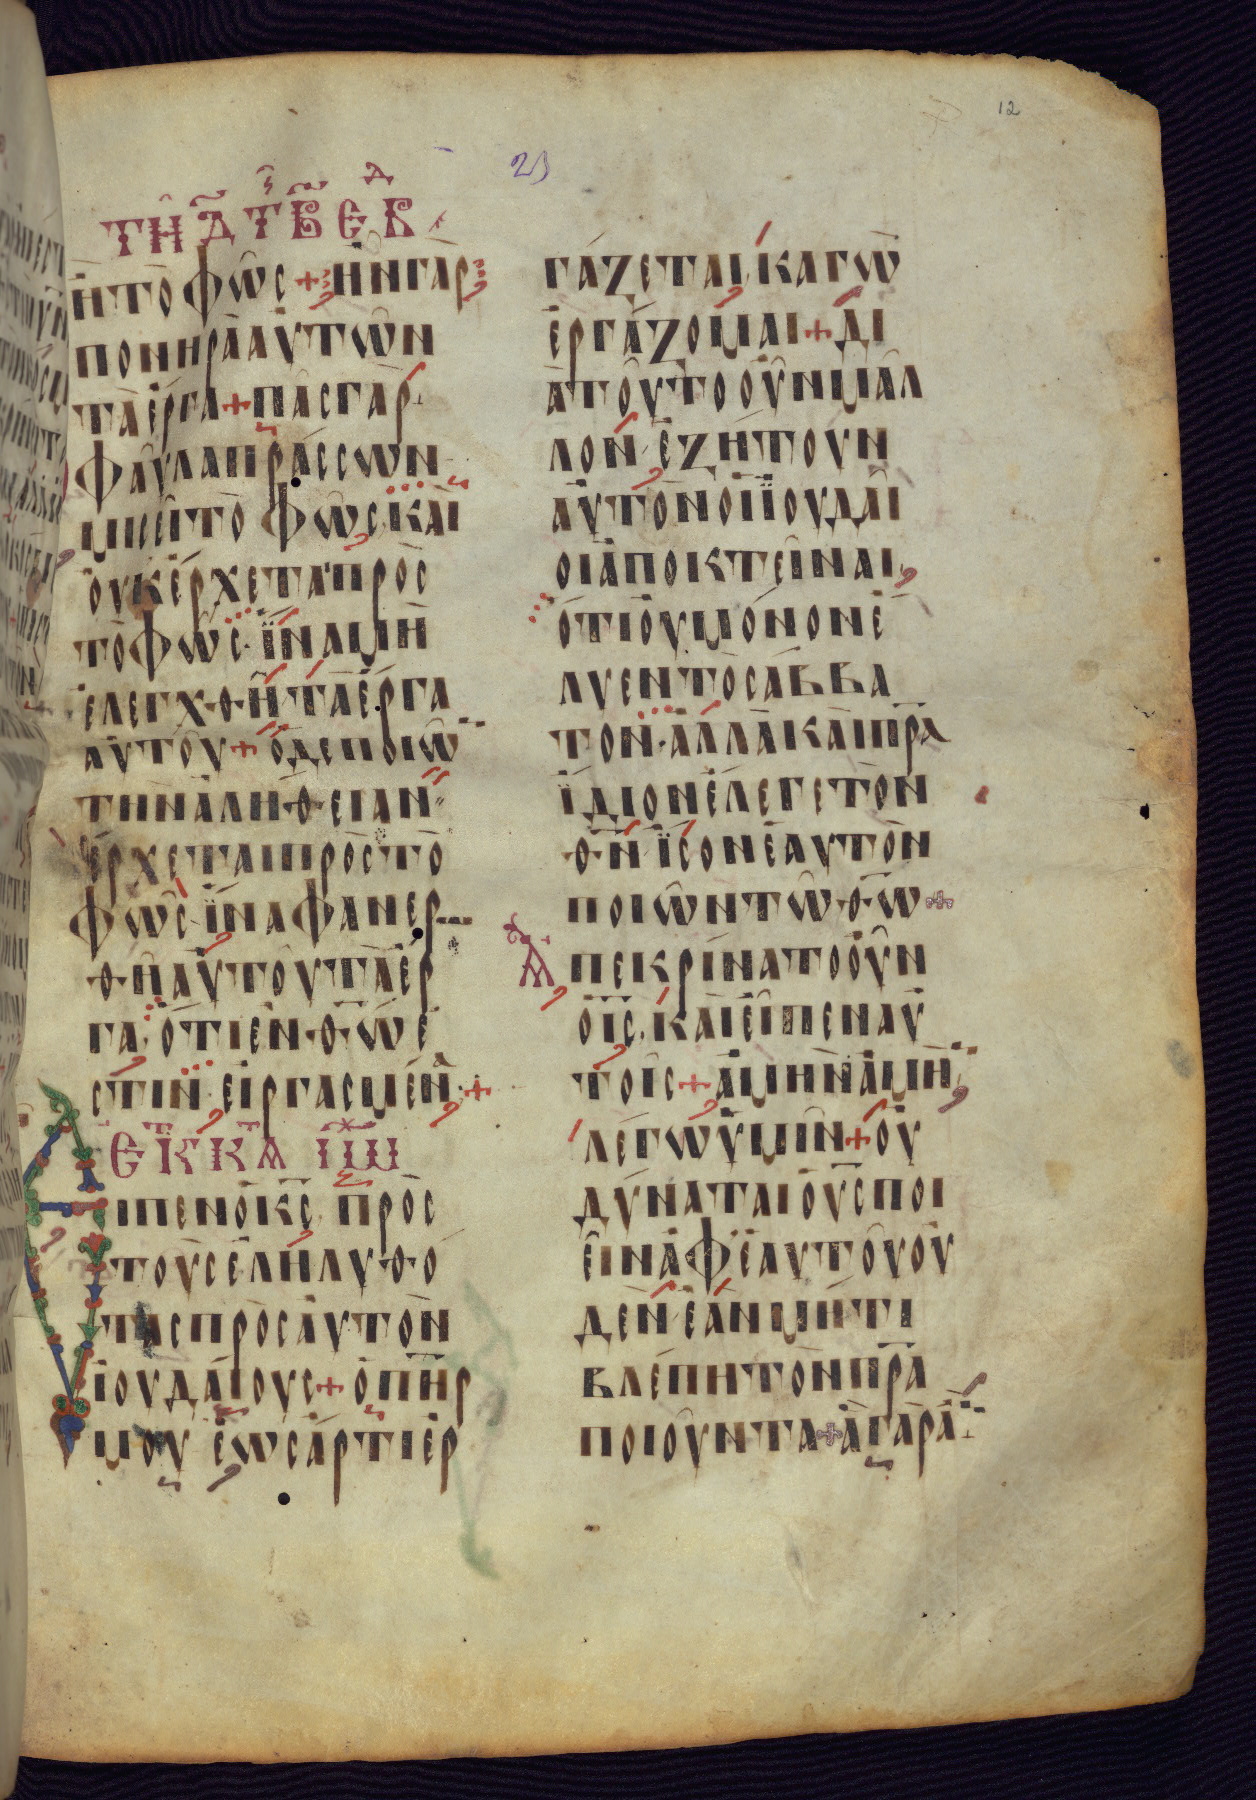 12
23
ΤΗ Δ ΤΗϹ Β ΕΒΔ
Η ΤΟ ΦΩϹ + ΗΝ ΓΑΡ
ΠΟΝΗΡΑ ΑΥΤΩΝ
ΤΑ ΕΡΓΑ + ΠΑϹ ΓΑΡ
ΦΑΥΛΑ ΠΡΑϹϹΩΝ
ΜΙϹΕΙ ΤΟ ΦΩϹ ΚΑΙ
ΟΥΚ ΕΡΧΕΤΑΙ ΠΡΟϹ
ΤΟ ΦΩϹ· ΪΝΑ ΜΗ
ΕΛΕΓΧΘΗ ΤΑ ΕΡΓΑ
ΑΥΤΟΥ + Ο ΔΕ ΠΟΙΩ
ΤΗΝ ΑΛΗΘΕΙΑΝ
ΕΡΧΕΤΑΙ ΠΡΟϹ ΤΟ
ΦΩϹ· ΪΝΑ ΦΑΝΕΡ
ΘΗ ΑΥΤΟΥ ΤΑ ΕΡ
ΓΑ· ΟΤΙ ΕΝ ΘΩ Ε
ϹΤΙΝ ΕΙΡΓΑϹΜΕΝΑ +
ΕΚ Κ ΤΑ ΙΩ
ΕΙΠΕΝ Ο ΚϹ ΠΡΟϹ
ΤΟΥϹ ΕΛΗΛΥΘΟ
ΤΑϹ ΠΡΟϹ ΑΥΤΟΝ
ΙΟΥΔΑΙΟΥϹ + Ο ΠΗΡ
ΜΟΥ ΕΩϹ ΑΡΤΙ ΕΡ
ΓΑΖΕΤΑΙ, ΚΑΓΩ
ΕΡΓΑΖΟΜΑΙ + ΔΙ
Α ΤΟΥΤΟ ΟΥΝ ΜΑΛ
ΛΟΝ ΕΖΗΤΟΥΝ
ΑΥΤΟΝ ΟΙ ΪΟΥΔΑΙ
ΟΙ ΑΠΟΚΤΕΙΝΑΙ,
ΟΤΙ ΟΥ ΜΟΝΟΝ Ε
ΛΥΕΝ ΤΟ ϹΑΒΒΑ
ΤΟΝ· ΑΛΛΑ ΚΑΙ ΠΡΑ
ΪΔΙΟΝ ΕΛΕΓΕ ΤΟΝ
ΘΝ ΪϹΟΝ ΕΑΥΤΟΝ
ΠΟΙΩΝ ΤΩ ΘΩ +
ΑΠΕΚΡΙΝΑΤΟ ΟΥΝ
Ο ΙϹ, ΚΑΙ ΕΙΠΕΝ ΑΥ
ΤΟΙϹ + ΑΜΗΝ ΑΜΗΝ
ΛΕΓΩ ΥΜΙΝ + ΟΥ
ΔΥΝΑΤΑΙ Ο ΥϹ ΠΟΙ
ΕΙΝ ΑΦ ΕΑΥΤΟΥ ΟΥ
ΔΕΝ ΕΑΝ ΜΗ ΤΙ
ΒΛΕΠΗ ΤΟΝ ΠΡΑ
ΠΟΙΟΥΝΤΑ + Α ΓΑΡ Α